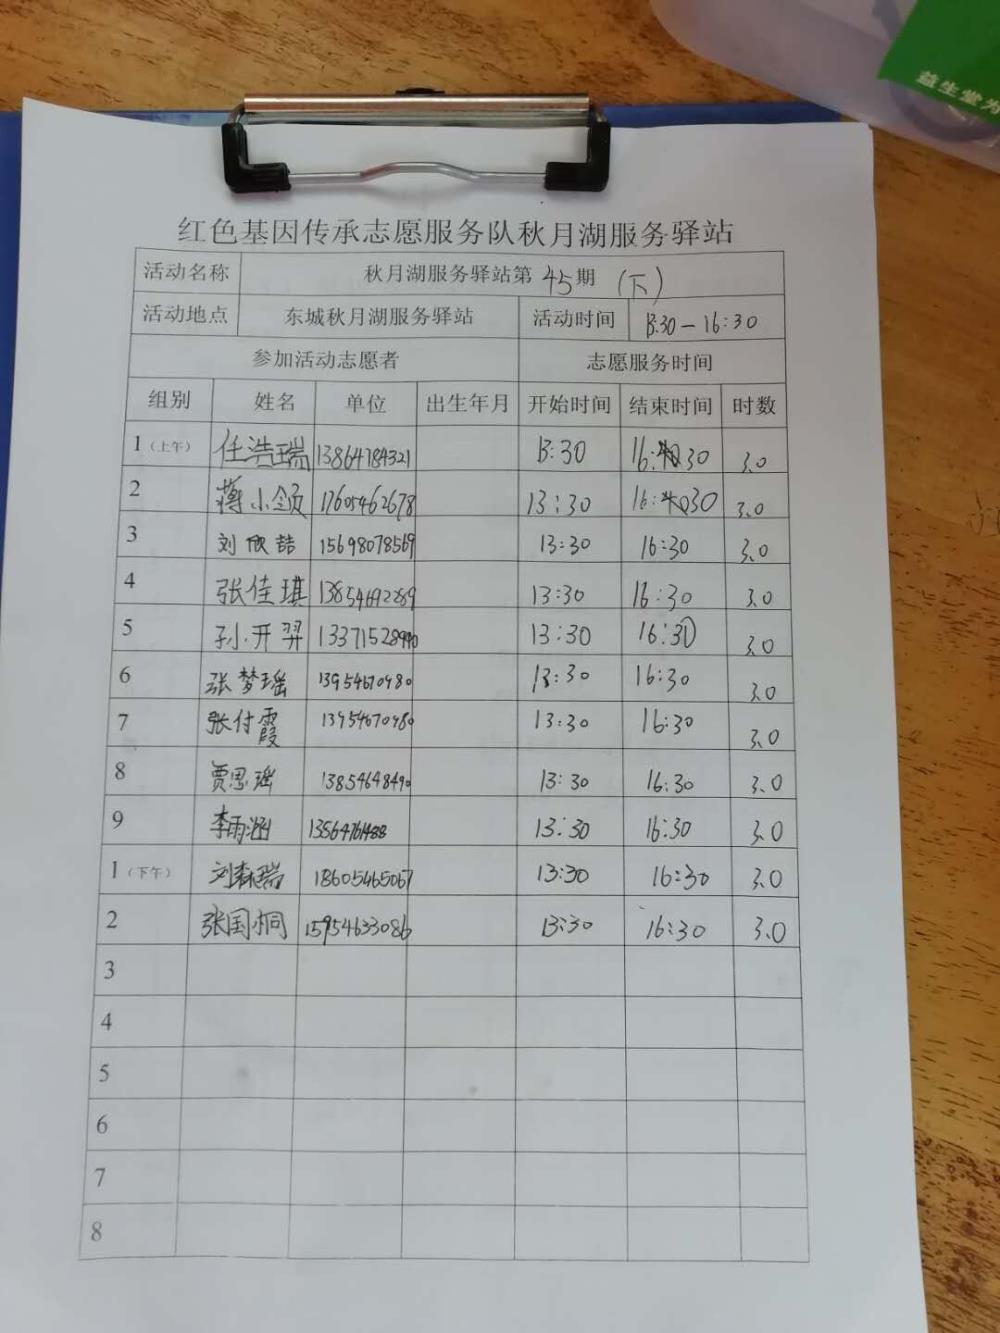 益生堂为
红色基因传承志愿服务队秋月湖服务驿站
活动名称 秋月湖服务驿站第45期 (下)
活动地点 东城秋月湖服务驿站 活动时间 13:30-16:30
参加活动志愿者 志愿服务时间
组别 姓名 单位 出生年月 开始时间 结束时间 时数
1(上午) 任浩瑞 13864784321 13:30 16:30 3.0
2 蒋小颂 17605462678 13:30 16:30 3.0
3 刘欣喆 15698078569 13:30 16:30 3.0
4 张佳琪 13854692289 13:30 16:30 3.0
5 孙开羿 13:30 16:30 3.0
6 张梦瑶 13954670980 13:30 16:30 3.0
7 张付霞 13954670980 13:30 16:30 3.0
8 贾思瑶 13854648490 13:30 16:30 3.0
9 李雨涵 13:30 16:30 3.0
1(下午) 刘森瑞 18605465067 13:30 16:30 3.0
2 张国桐 15954633086 13:30 16:30 3.0
3
4
5
6
7
8